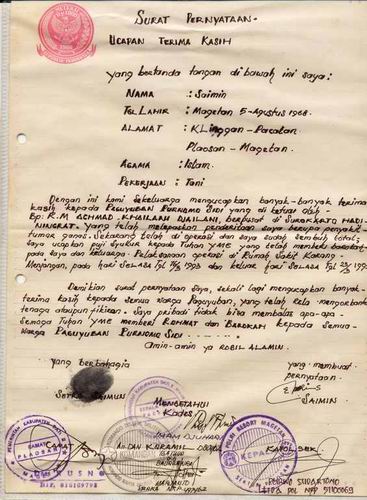 SURAT PERNYATAAN-
UCAPAN TERIMA KASIH
yang bertanda tangan di bawah ini saya:
NAMA : Saimin
Tgl LAHIR : Magetan 5-Agustus 1968.
ALAMAT : KLinggan - Pacalan
Plaosan - Magetan.
AGAMA : Islam.
PEKERJAAN : Tani
Dengan ini kami sekeluarga mengucapkan banyak-banyak terima
kasih kepada PAGUYUBAN PURNOMO SIDI yang di ketuai oleh-
Bp: R.M ACHMAD KHAILANI DJAILANI, berpusat di SURAKARTA HADI-
NINGRAT. yang telah melepaskan penderitaan saya berupa penyakit
tumor ganas. Sekarang telah di operasi dan saya sudah sembuh total;
Saya ucapkan puji syukur kepada Tuhan YME yang telah memberi
pada saya dan keluarga. Pelaksanaan operasi di Rumah Sakit Karang-
Menjangan, pada hari SELASA Tgl 1993 dan keluar hari SELASA Tgl
Demikian surat pernyataan saya, sekali lagi mengucapkan banyak-
terima kasih kepada semua warga Paguyuban, yang telah rela mengorbankan
tenaga ataupun fikiran. Saya pribadi tidak bisa membalas apa-apa-
semoga Tuhan YME memberi ROHMAT dan BAROKAH kepada semua-
WARGA PAGUYUBAN PURNOMO SIDI
Amin-amin ya ROBIL ALAMIN.
yang berbahagia
yang membuat
pernyataan
SAIMIN
MENGETAHUI
Kades
IMAM DJUHARI
CAMAT
KAPOLSEK
PLAOSAN